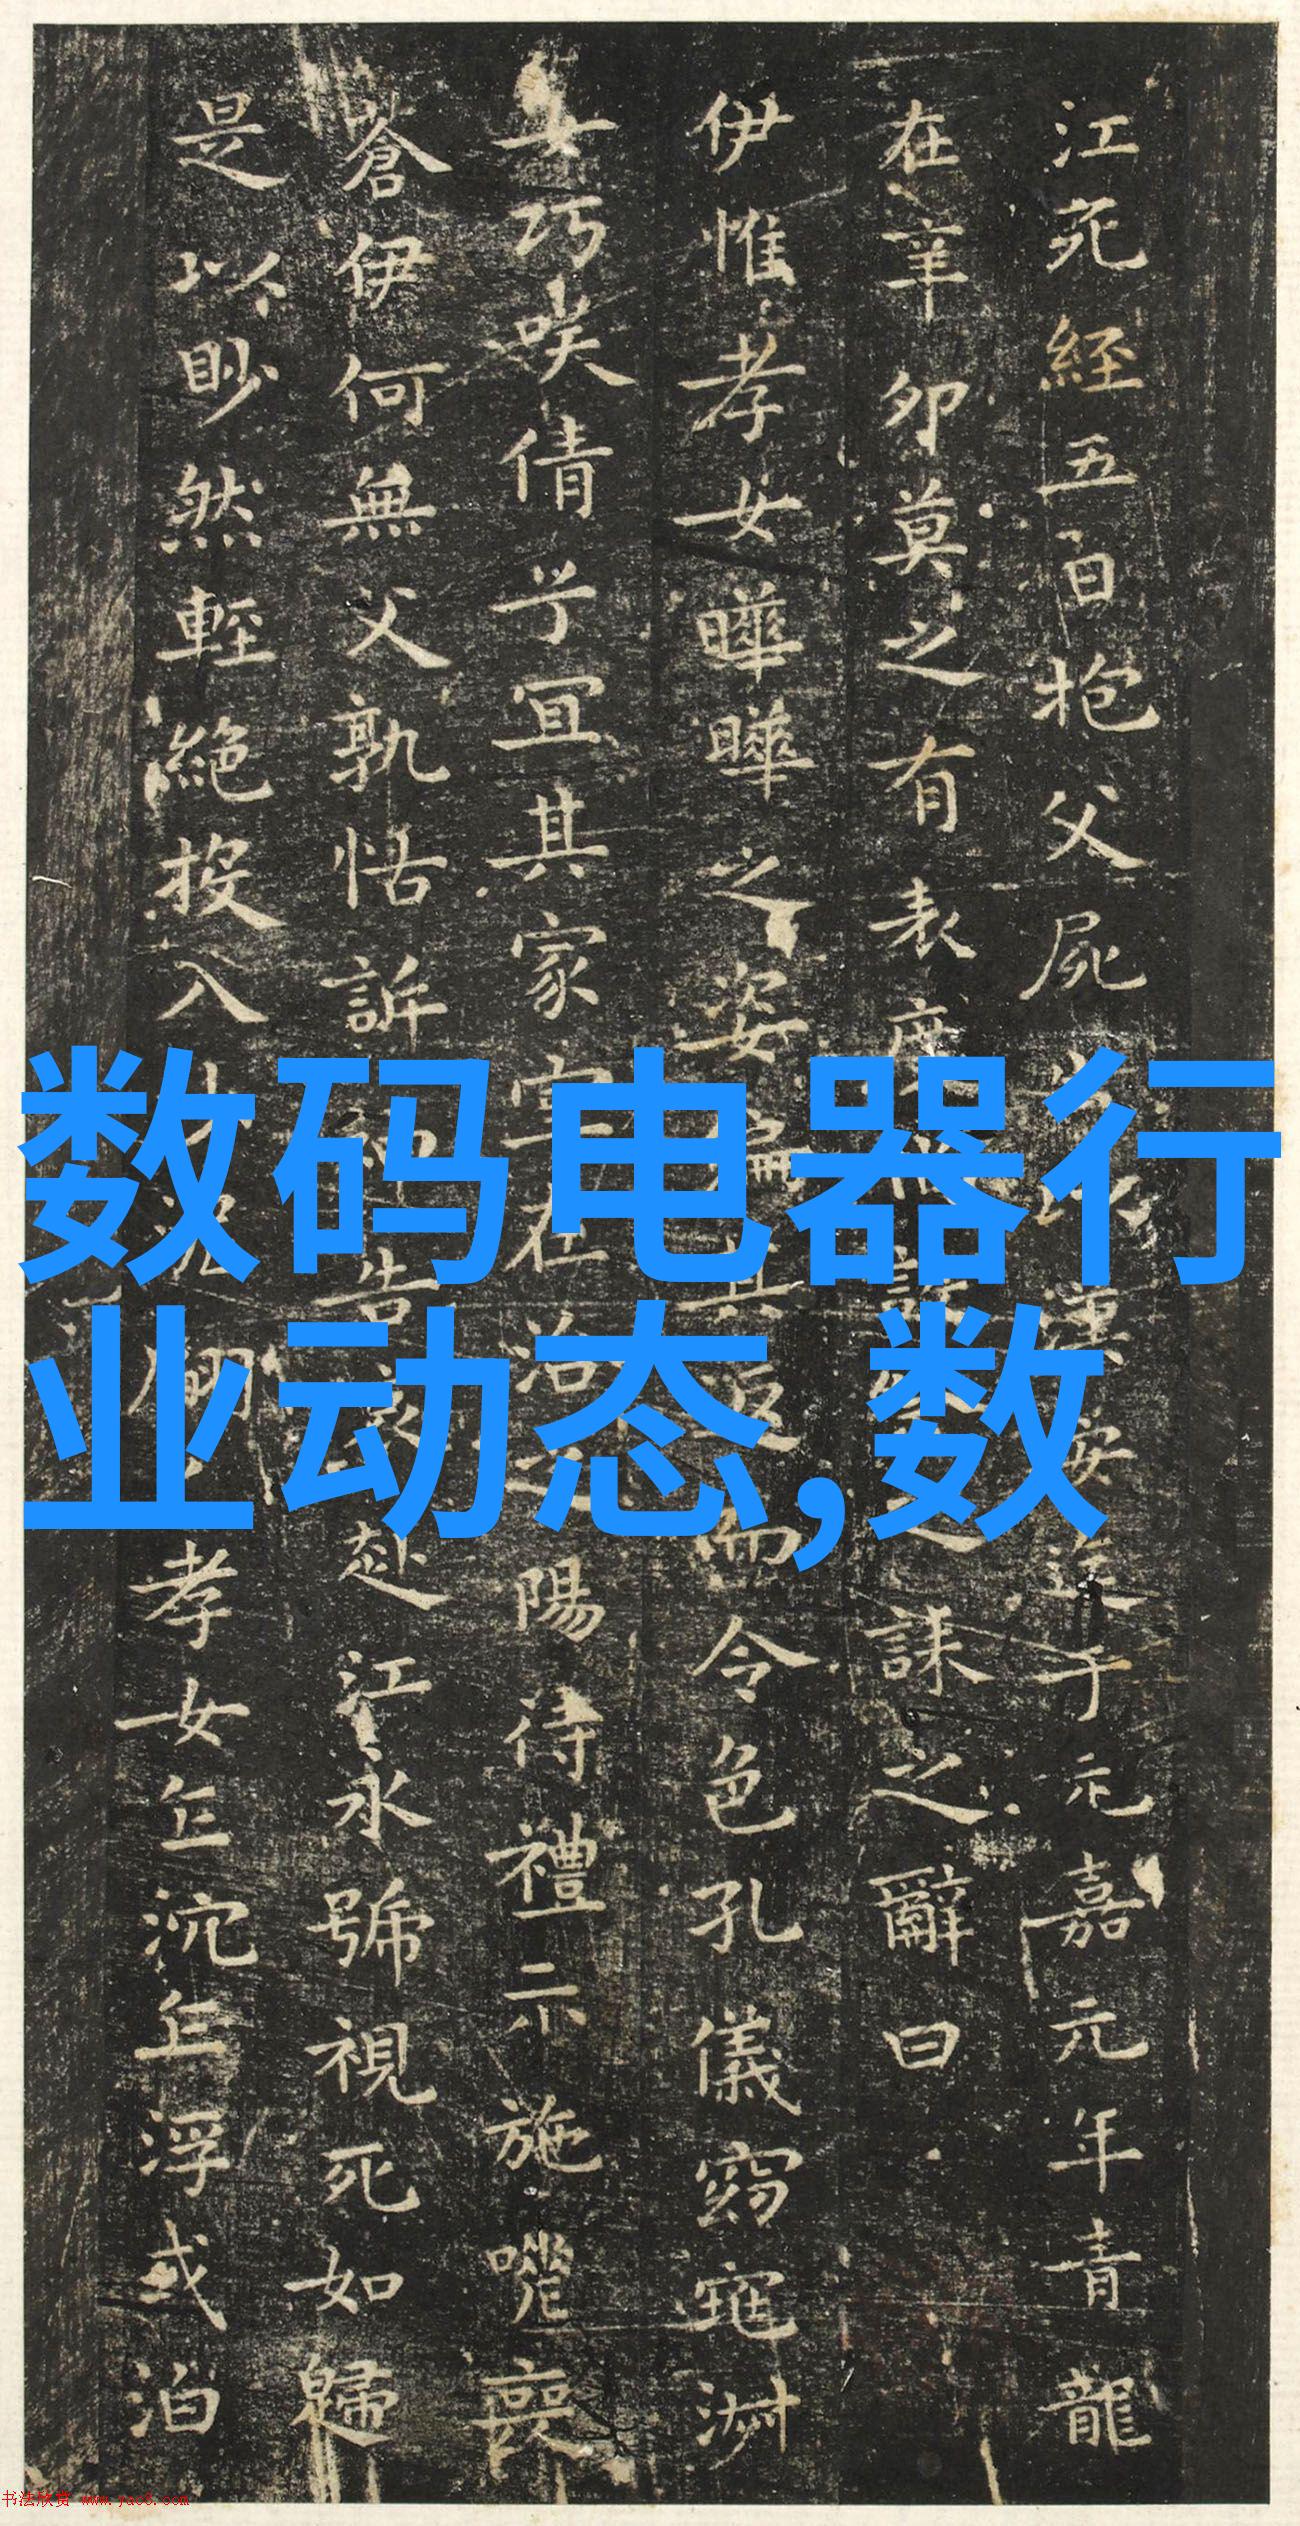 江死經五日抱父屍
于元嘉元年青龍
在辛卯莫之有表
誄之辭曰
伊惟孝女曄曄之姿偏其返而令色孔儀窈窕淑
女巧咲倩兮宜其家室在洽之陽待禮未施嗟喪
蒼伊何無父孰怙訴神告哀赴江永號視死如歸
是以眇然輕絕投入
孝女乍沉乍浮或泊
数码电器行
业动态,数
书法欣赏 www.yac8.com